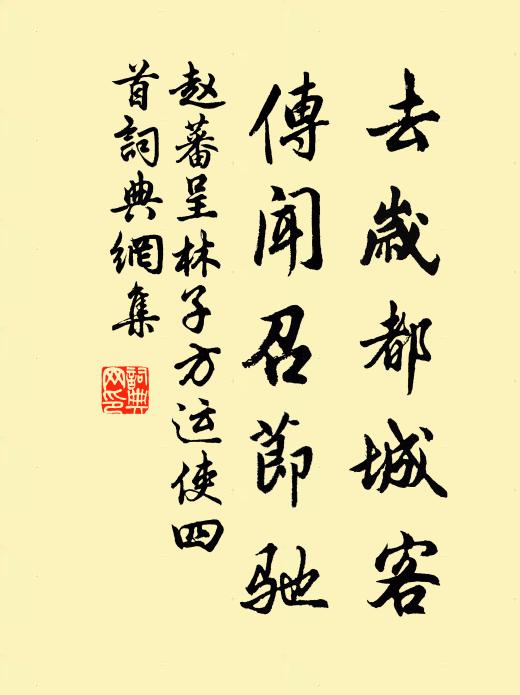 去歲都城客
傳聞召節馳
赵蕃呈林子方运使四
首詞典網集
詞典
网印